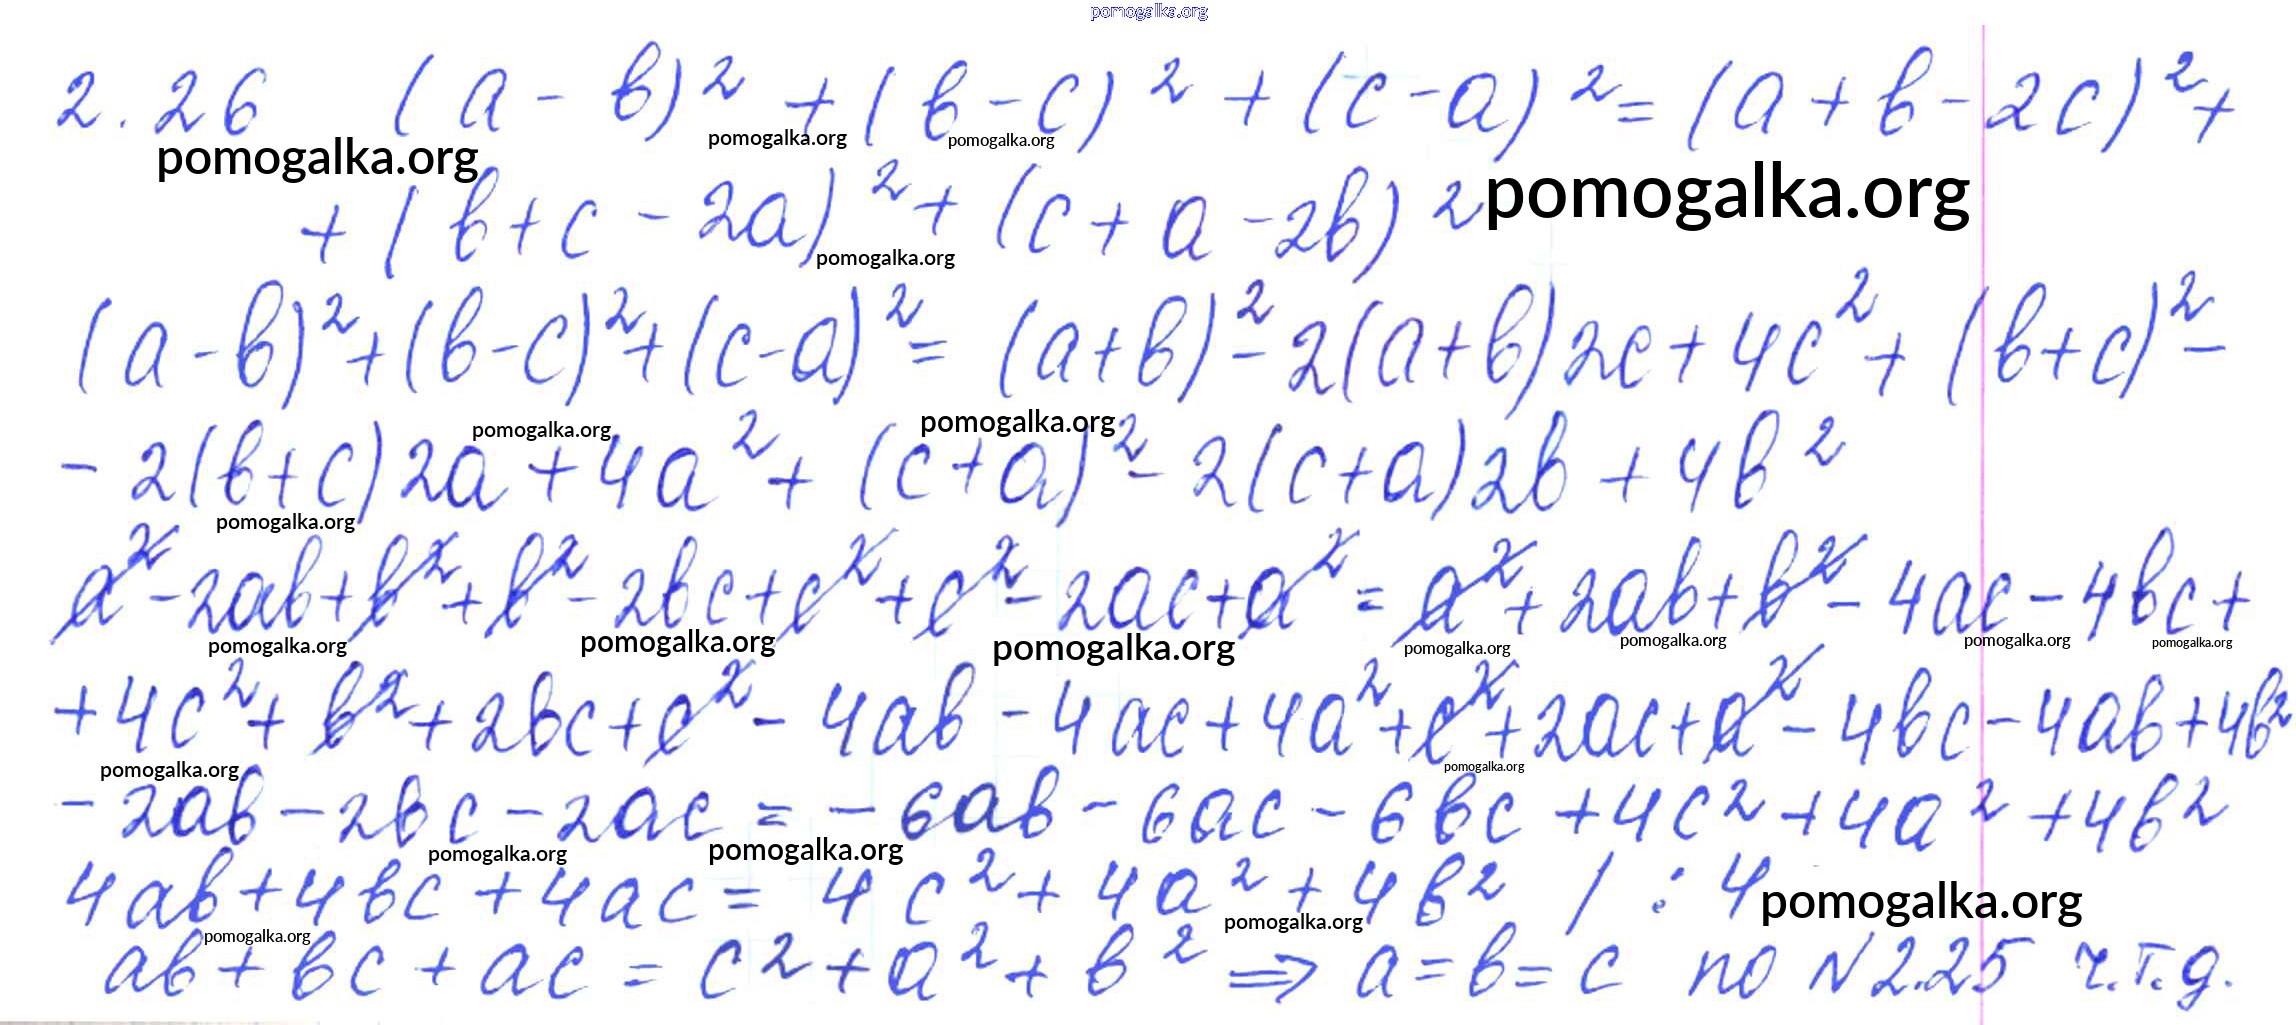 pomogalka.org
2.26 (a - b)² + (b - c)² + (c - a)² = (a + b - 2c)² +
pomogalka.org pomogalka.org pomogalka.org
+ (b + c - 2a)² + (c + a - 2b)² pomogalka.org
pomogalka.org
(a - b)² + (b - c)² + (c - a)² = (a + b)² - 2(a + b)2c + 4c² + (b + c)² -
pomogalka.org pomogalka.org
- 2(b + c)2a + 4a² + (c + a)² - 2(c + a)2b + 4b²
pomogalka.org
a² - 2ab + b² + b² - 2bc + c² + c² - 2ac + a² = a² + 2ab + b² - 4ac - 4bc +
pomogalka.org pomogalka.org pomogalka.org pomogalka.org pomogalka.org pomogalka.org pomogalka.org
+ 4c² + b² + 2bc + c² - 4ab - 4ac + 4a² + c² + 2ac + a² - 4bc - 4ab + 4b²
pomogalka.org pomogalka.org
- 2ab - 2bc - 2ac = - 6ab - 6ac - 6bc + 4c² + 4a² + 4b²
pomogalka.org pomogalka.org
4ab + 4bc + 4ac = 4c² + 4a² + 4b² / : 4 pomogalka.org
pomogalka.org pomogalka.org
ab + bc + ac = c² + a² + b² ⇒ a = b = c по N 2.25 ч.т.д.